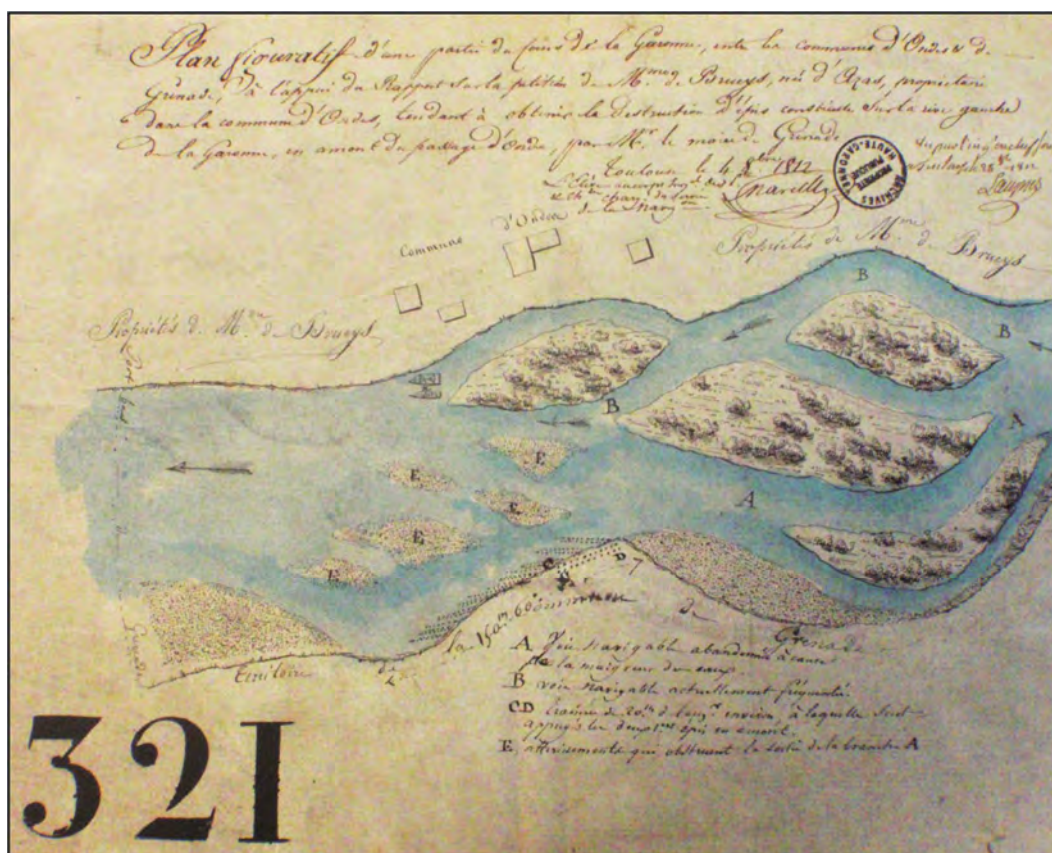 Plan figuratif d'une partie du Cours de la Garonne, entre les communes d'Ondes & de
Grenade, à l'appui du Rapport sur la pétition de Mme de Brueys, née d'Azas, propriétaire
dans la commune d'Ondes, tendant à obtenir la destruction d'épis construits sur la rive gauche
de la Garonne, en amont du passage d'Ondes, par Mr. le maire de Grenade
Toulouse le 4 8bre 1812
de la Nav.on
ARCHIVES
PROPRIÉTÉ PUBLIQUE
HAUTE-GARONNE
Commune d'Ondes
Propriétés de Mme de Brueys
Propriétés de Mme de Brueys
B
B
B
A
A
E
E
E
E
E
C
D
Grenade
Territoire de la Commune de Grenade
A Voie Navigable abandonnée à cause
de la maigreur des eaux.
B voie Navigable actuellement fréquentée.
CD traînée de 20m de long.r environ, à laquelle sont
appuyés les deux 1ers épis en amont.
E, attérissements qui obstruent la sortie de la branche A
321